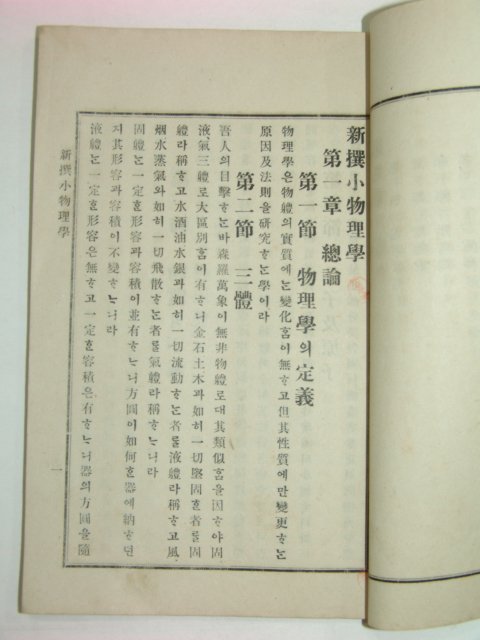 新撰小物理學
第一章 總論
第一節 物理學의 定義
物理學은 物體의 實質에는 變化홈이 無ᄒᆞ고 但其性質에만 變更ᄒᆞ는
原因及法則을 硏究ᄒᆞ는 學이라
第二節 三體
吾人의 目擊ᄒᆞ는바 森羅萬象이 無非物體로대 其類似홈을 因ᄒᆞ야 固、
液、氣、三體로 大區別홈이 有ᄒᆞ니 金石土木과 如히 一切堅固ᄒᆞᆫ 者를 固
體라 稱ᄒᆞ고 水酒油水銀과 如히 一切流動ᄒᆞ는 者를 液體라 稱ᄒᆞ고 風、
烟水蒸氣와 如히 一切飛散ᄒᆞ는 者를 氣體라 稱ᄒᆞᄂᆞ니라
固體는 一定ᄒᆞᆫ 形容과 容積이 並有ᄒᆞᄂᆞ니 方圓이 如何ᄒᆞᆫ 器에 納ᄒᆞ던
지 其形容과 容積이 不變ᄒᆞᄂᆞ니라
液體는 一定ᄒᆞᆫ 形容은 無ᄒᆞ고 一定ᄒᆞᆫ 容積은 有ᄒᆞᄂᆞ니 器의 方圓을 隨
新撰小物理學
一